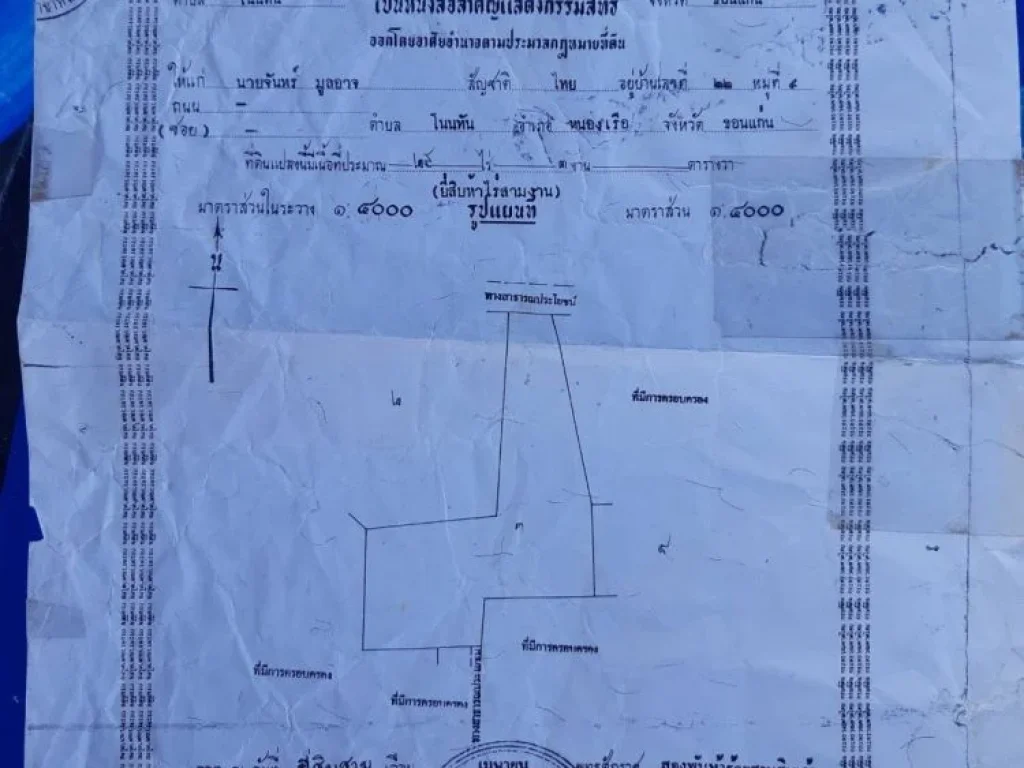 ตำบล โนนทัน จังหวัด ขอนแก่น
เป็นหนังสือสำคัญแสดงกรรมสิทธิ์
ออกโดยอาศัยอำนาจตามประมวลกฎหมายที่ดิน
ให้แก่ นายจันทร์ มูลอาจ สัญชาติ ไทย อยู่บ้านเลขที่ ๒๒ หมู่ที่ ๙
ถนน –
(ซอย) – ตำบล โนนทัน อำเภอ หนองเรือ จังหวัด ขอนแก่น
ที่ดินแปลงนี้มีเนื้อที่ประมาณ ๒๕ ไร่ ๓ งาน ตารางวา
(ยี่สิบห้าไร่สามงาน)
มาตราส่วนในระวาง ๑:๕๐๐๐ รูปแผนที่ มาตราส่วน ๑:๕๐๐๐
น
ทางสาธารณประโยชน์
๒ ที่มีการครอบครอง
๓
๙
ที่มีการครอบครอง
ที่มีการครอบครอง
ที่มีการครอบครอง
ทางสาธารณประโยชน์
ยี่สิบสาม เดือน เมษายน พุทธศักราช